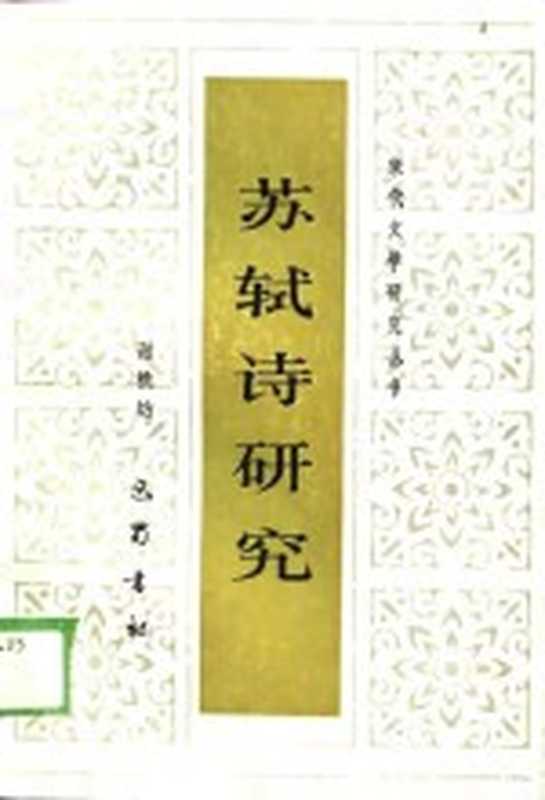 宋代文学研究丛书
苏轼诗研究
谢桃坊
巴蜀书社